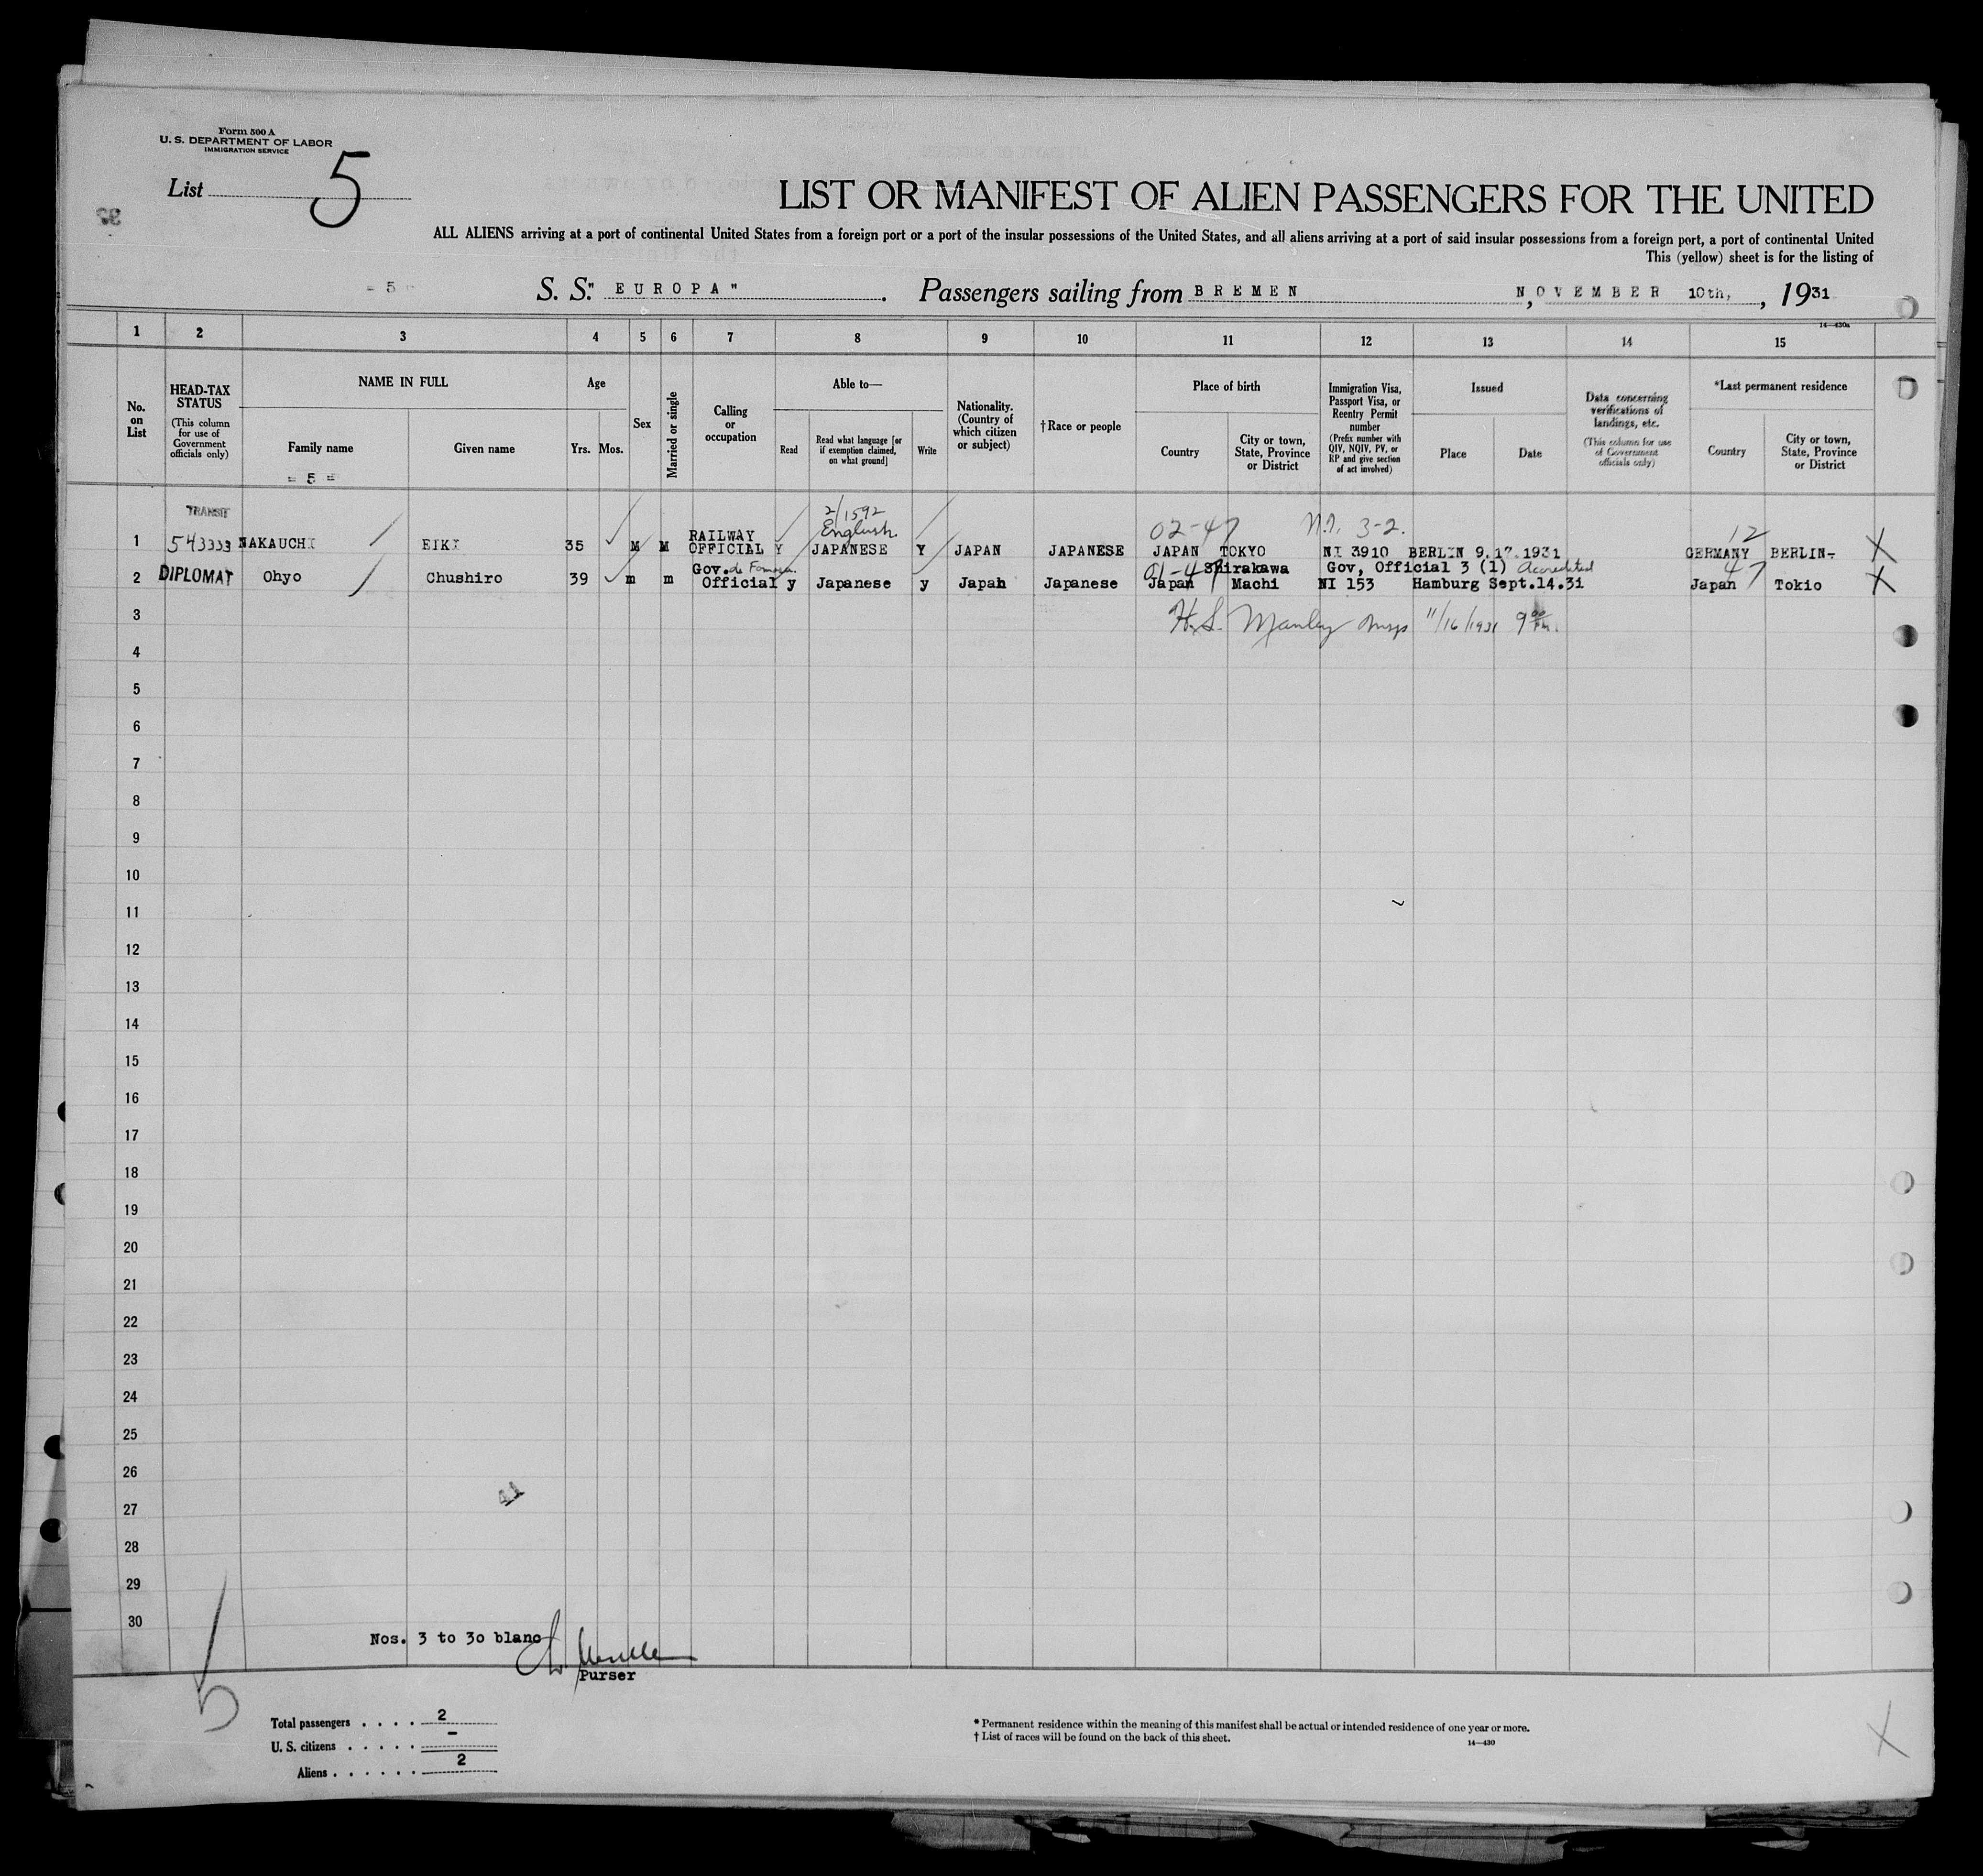 Form 500 A
U. S. DEPARTMENT OF LABOR
IMMIGRATION SERVICE
List 5
LIST OR MANIFEST OF ALIEN PASSENGERS FOR THE UNITED
ALL ALIENS arriving at a port of continental United States from a foreign port or a port of the insular possessions of the United States, and all aliens arriving at a port of said insular possessions from a foreign port, a port of continental United
This (yellow) sheet is for the listing of
- 5 - S. S. "EUROPA". Passengers sailing from BREMEN, NOVEMBER 10th, , 1931
14—430a
1 2 3 4 5 6 7 8 9 10 11 12 13 14 15
No. on List
HEAD-TAX STATUS (This column for use of Government officials only)
NAME IN FULL
Family name
Given name
= 5 =
Age
Yrs. Mos.
Sex
Married or single
Calling or occupation
Able to—
Read
Read what language [or if exemption claimed, on what ground]
Write
Nationality. (Country of which citizen or subject)
† Race or people
Place of birth
Country
City or town, State, Province or District
Immigration Visa, Passport Visa, or Reentry Permit number (Prefix number with QIV, NQIV, PV, or RP and give section of act involved)
Issued
Place
Date
Data concerning verifications of landings, etc. (This column for use of Government officials only)
*Last permanent residence
Country
City or town, State, Province or District
TRANSIT 2/1592 English 02-47 N.I. 3-2. 12
1 543333 NAKAUCHI EIKI 35 M M RAILWAY OFFICIAL Y JAPANESE Y JAPAN JAPANESE JAPAN TOKYO NI 3910 BERLIN 9.17.1931 GERMANY BERLIN- X
Gov. 01-47 Shirakawa Gov, Official 3 (1) Accredited 47
2 DIPLOMAT Ohyo Chushiro 39 m m Official y Japanese y Japan Japanese Japan Machi NI 153 Hamburg Sept.14.31 Japan Tokio X
3 H.S. Manley 11/16/1931 9 00
4
5
6
7
8
9
10
11
12
13
14
15
16
17
18
19
20
21
22
23
24
25
26
27
28
29
30
Nos. 3 to 30 blanc
Purser
5
Total passengers . . . . 2
U. S. citizens . . . . . –
Aliens . . . . . . 2
* Permanent residence within the meaning of this manifest shall be actual or intended residence of one year or more.
† List of races will be found on the back of this sheet.
14—430
X